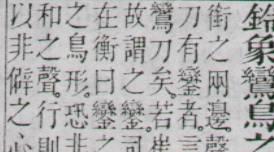 象鸞鳥之
銜之兩邊聲
刀有鑾者
鸞刀矣。若崔
故謂之鑾。可
在衡曰鑾
之鳥形。恐非
和之聲。行則
以非僻之心